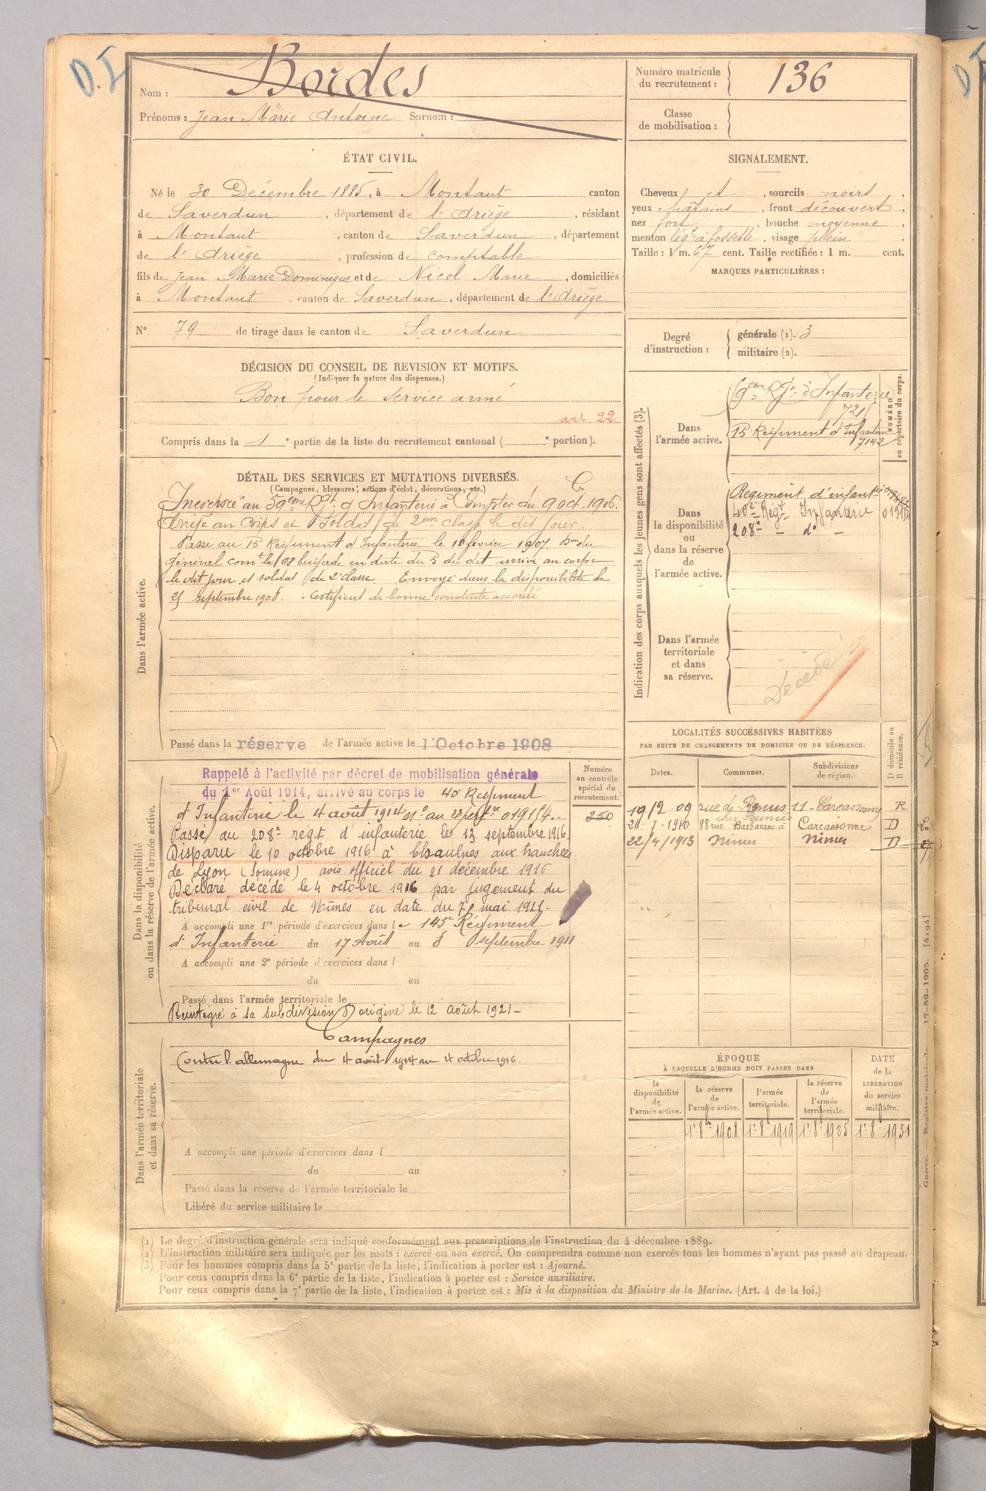 D.I
Nom : Bordes
Prénoms : Jean Marie Antoine Surnom :
Numéro matricule du recrutement : 136
Classe de mobilisation :
ÉTAT CIVIL.
Né le 30 Décembre 1885, à Montaut canton
de Saverdun, département de l'Ariège, résidant
à Montaut, canton de Saverdun, département
de l'Ariège, profession de comptable
fils de Jean Marie Dominique et de Nicol Marie, domiciliés
à Montaut, canton de Saverdun, département de l'Ariège
N° 79 de tirage dans le canton de Saverdun
SIGNALEMENT.
Cheveux et, sourcils noirs.
yeux châtains, front découvert,
nez fort, bouche moyenne
menton lég. à fossette, visage plein
Taille : 1 m. 67 cent. Taille rectifiée : 1 m. cent.
MARQUES PARTICULIÈRES :
Degré d'instruction :
générale (1). 3
militaire (2).
DÉCISION DU CONSEIL DE REVISION ET MOTIFS.
(Indiquer la nature des dispenses.)
Bon pour le service armé
art. 22
Compris dans la 1e partie de la liste du recrutement cantonal ( e portion).
DÉTAIL DES SERVICES ET MUTATIONS DIVERSES.
(Campagnes, blessures, actions d'éclat, décorations, etc.)
Dans l'armée active.
Incorporé au 59ème Rgt. d'Infanterie à compter du 9 oct. 1906.
Arrivé au Corps et Soldat de 2me classe le dit jour.
Passé au 15 Régiment d'Infanterie le 10 février 1907. Don du
Général comt la 68 brigade en date du 5 du dit arrivé au corps
le dit jour et soldat de 2e classe Envoyé dans la disponibilité le
25 septembre 1908. Certificat de bonne conduite accordé
Passé dans la réserve de l'armée active le 1 Octobre 1908
Indication des corps auxquels les jeunes gens sont affectés (3).
NUMÉRO au répertoire du corps.
Dans l'armée active.
59ème Rgt. d'Infanterie
721
15 Régiment d'Infanterie
7142
Dans la disponibilité ou dans la réserve de l'armée active.
Régiment d'infant
40e Regt Infanterie 01914
208e - do -
Dans l'armée territoriale et dans sa réserve.
Décédé
Dans la disponibilité ou dans la réserve de l'armée active.
Rappelé à l'activité par décret de mobilisation générale
du 1er Août 1914, arrivé au corps le 40 Régiment
d'Infanterie le 4 août 1914 n° au répre 01914.
Passé au 208e regt d'infanterie le 13 septembre 1916
Disparu le 10 octobre 1916 à Chaulnes aux tranchées
de Lyon (Somme) avis officiel du 21 décembre 1916
Déclaré décédé le 4 octobre 1916 par jugement du
tribunal civil de Nîmes en date du 7 mai 1921.
A accompli une 1re période d'exercices dans le 143e Régiment
d'Infanterie du 17 Août au 8 septembre 1911
A accompli une 2e période d'exercices dans l
du au
Passé dans l'armée territoriale le
Réintégré à sa subdivision d'origine le 12 août 1921
Numéro au contrôle spécial du recrutement.
250
LOCALITÉS SUCCESSIVES HABITÉES
PAR SUITE DE CHANGEMENTS DE DOMICILE OU DE RÉSIDENCE.
Dates. Communes. Subdivisions de région. D domicile au R résidence.
19/2 09 rue de 11 Carcassonne R
28-7-1910 88 rue Barbacane à Carcassonne D
22/4/1913 Nîmes Nîmes D
Dans l'armée territoriale et dans sa réserve.
Campagnes
Contre l'allemagne du 4 août 1914 au 4 octobre 1916
A accompli une période d'exercices dans l
du au
Passé dans la réserve de l'armée territoriale le
Libéré du service militaire le
ÉPOQUE
À LAQUELLE L'HOMME DOIT PASSER DANS
la disponibilité de l'armée active.
la réserve de l'armée active.
l'armée territoriale.
la réserve de l'armée territoriale.
DATE de la LIBÉRATION du service militaire.
1 8bre 1908 1 8bre 1919 1 8bre 1925 1 8bre 1931
(1) Le degré d'instruction générale sera indiqué conformément aux prescriptions de l'instruction du 4 décembre 1889.
(2) L'instruction militaire sera indiquée par les mots : exercé ou non exercé. On comprendra comme non exercés tous les hommes n'ayant pas passé au drapeau.
(3) Pour les hommes compris dans la 5e partie de la liste, l'indication à porter est : Ajourné.
Pour ceux compris dans la 6e partie de la liste, l'indication à porter est : Service auxiliaire.
Pour ceux compris dans la 7e partie de la liste, l'indication à porter est : Mis à la disposition du Ministre de la Marine. (Art. 4 de la loi.)